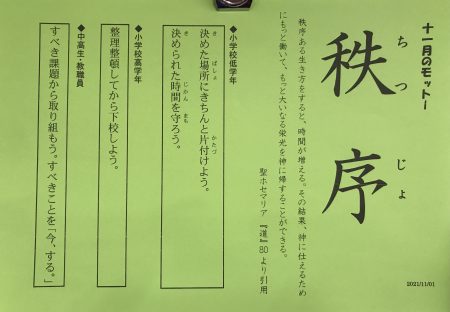 十一月のモットー
ちつじょ
秩序
秩序ある生き方をすると、時間が増える。その結果、神に仕えるため
にもっと働いて、もっと大いなる栄光を神に帰することができる。
聖ホセマリア『道』80より引用
◆小学校低学年
決めた場所にきちんと片付けよう。
き ばしょ かたづ
決められた時間を守ろう。
き じかん まも
◆小学校高学年
整理整頓してから下校しよう。
◆中高生・教職員
すべき課題から取り組もう。すべきことを「今、する。」
2021/11/01